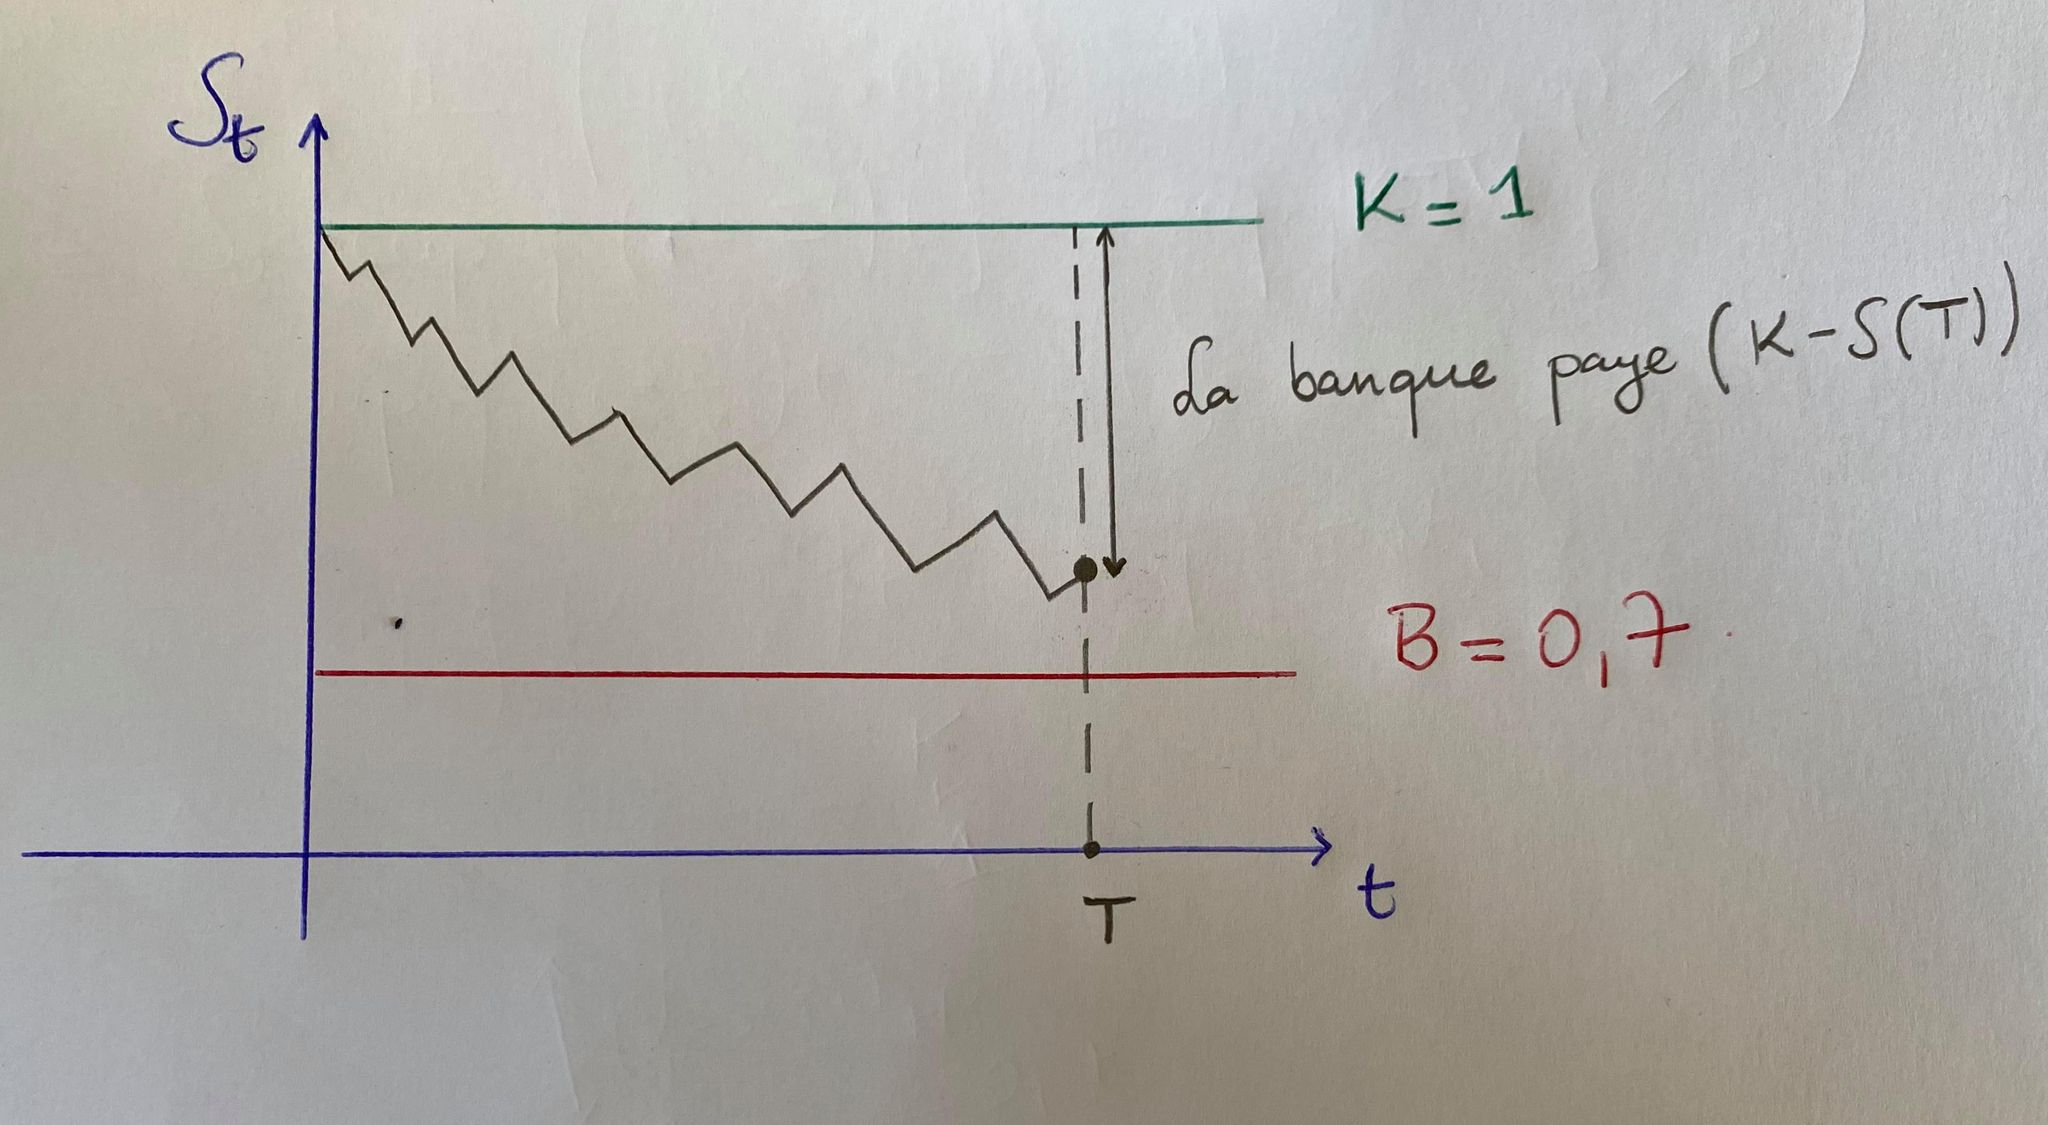 St
K = 1
La banque paye (K - S(T))
B = 0,7
t
T